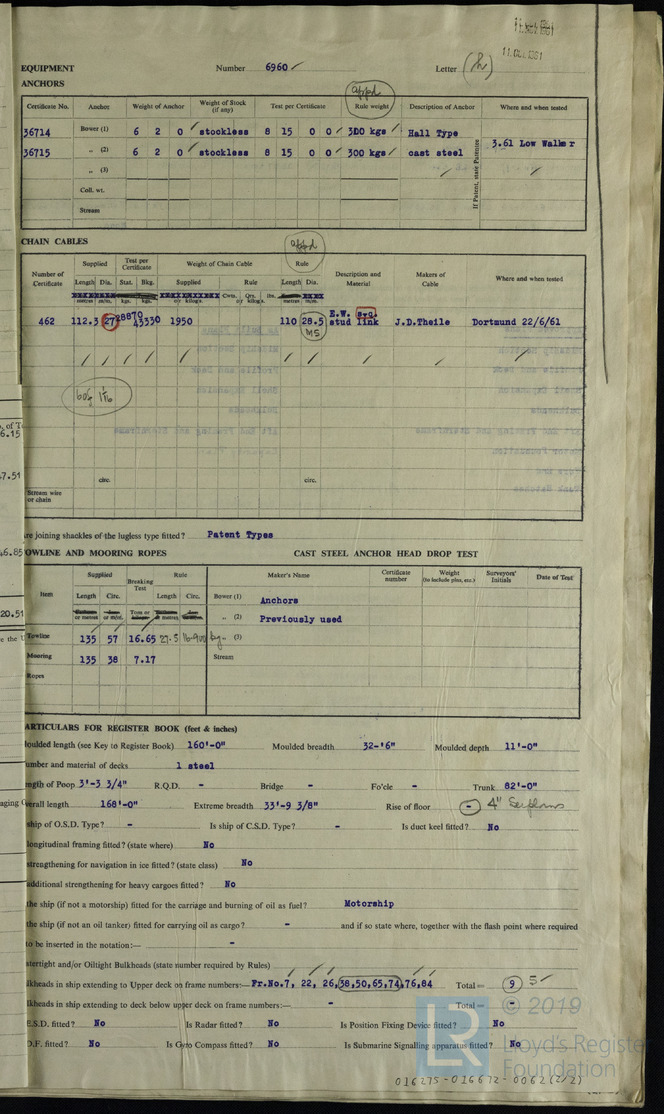 11 OCT 1961
EQUIPMENT Number 6960 Letter (h)
ANCHORS
appd
Certificate No. Anchor Weight of Anchor Weight of Stock (if any) Test per Certificate Rule weight Description of Anchor Where and when tested
36714 Bower (1) 6 2 0 stockless 8 15 0 0 300 kgs Hall Type
36715 „ (2) 6 2 0 stockless 8 15 0 0 300 kgs cast steel 3.61 Low Walker
„ (3)
If Patent, state Patentee
Coll. wt.
Stream
CHAIN CABLES
appd
Number of Certificate Supplied Test per Certificate Weight of Chain Cable Rule Description and Material Makers of Cable Where and when tested
Length Dia. Stat. Bkg. Supplied Rule Length Dia.
metres m/m. kgs. kgs. or kilogs. Cwts. Qrs. lbs. or kilogs. metres m/m.
462 112.3 27 28870 43330 1950 110 28.5 E.W. s.q. stud link J.D.Theile Dortmund 22/6/61
MS
60f 1 1/16
circ. circ.
Stream wire or chain
re joining shackles of the lugless type fitted? Patent Types
OWLINE AND MOORING ROPES CAST STEEL ANCHOR HEAD DROP TEST
Item Supplied Breaking Test Rule Maker's Name Certificate number Weight (to include pins, etc.) Surveyors' Initials Date of Test
Length Circ. Length Circ.
Bower (1) Anchors
„ (2) Previously used
Towline 135 57 16.65 27.5 16.900 kg „ (3)
Mooring 135 38 7.17 Stream
Ropes
ARTICULARS FOR REGISTER BOOK (feet & inches)
oulded length (see Key to Register Book) 160'-0" Moulded breadth 32-'6" Moulded depth 11'-0"
umber and material of decks 1 steel
ngth of Poop 3'-3 3/4" R.Q.D. - Bridge - Fo'cle - Trunk 82'-0"
erall length 168'-0" Extreme breadth 33'-9 3/8" Rise of floor - 4"
ship of O.S.D. Type? - Is ship of C.S.D. Type? - Is duct keel fitted? No
longitudinal framing fitted? (state where) No
strengthening for navigation in ice fitted? (state class) No
additional strengthening for heavy cargoes fitted? No
the ship (if not a motorship) fitted for the carriage and burning of oil as fuel? Motorship
the ship (if not an oil tanker) fitted for carrying oil as cargo? - and if so state where, together with the flash point where required
to be inserted in the notation:— -
atertight and/or Oiltight Bulkheads (state number required by Rules)
lkheads in ship extending to Upper deck on frame numbers:— Fr.No.7, 22, 26, 38,50,65,74,76,84 Total= 9 5
lkheads in ship extending to deck below upper deck on frame numbers:— - Total= -
E.S.D. fitted? No Is Radar fitted? No Is Position Fixing Device fitted? No
D.F. fitted? No Is Gyro Compass fitted? No Is Submarine Signalling apparatus fitted? No
LR
© 2019
Lloyd's Register
Foundation
016275-016672-0062 (2/2)